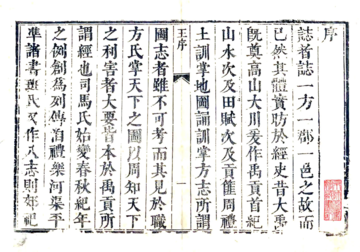 序
誌者誌一方一郡一邑之故而
已然其體實昉於經史昔大禹
既奠高山大川爰作禹貢首紀
山水次及田賦次及貢篚周禮
土訓掌地圖誦訓掌方志所謂
王序
一
國志者雖不可考而其見於職
方氏掌天下之圖以周知天下
之利害者大要皆本於禹貢所
謂經也司馬氏始變春秋紀年
之例創為列傳洎禮樂河渠平
準諸書班氏又作八志則郊祀